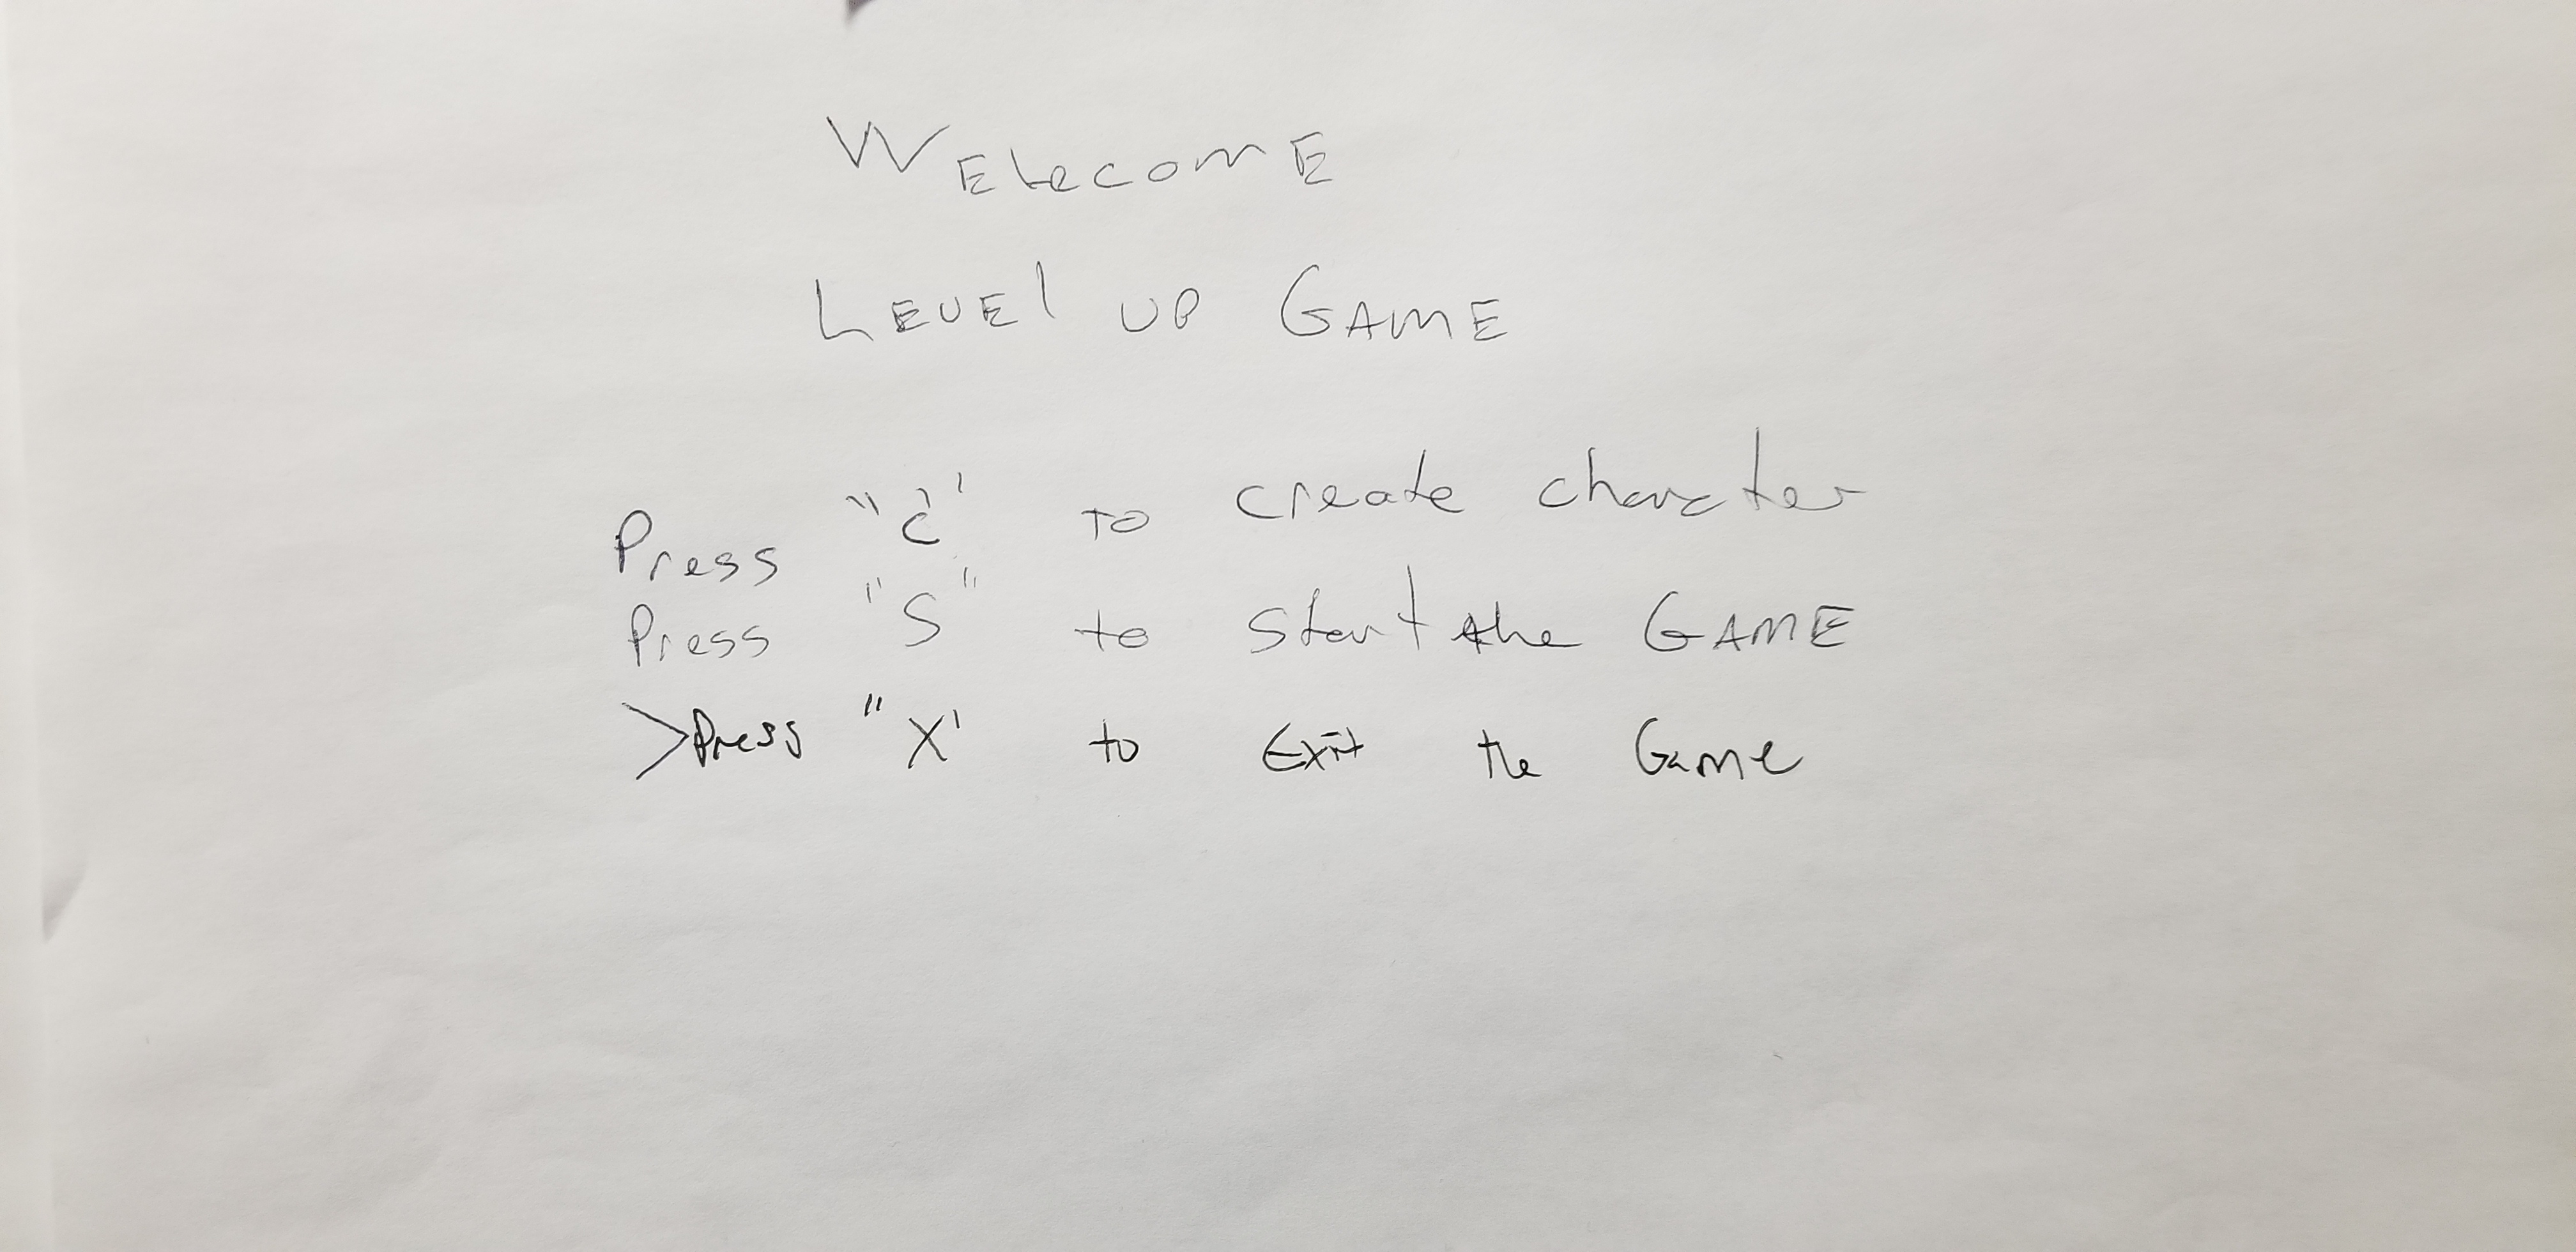 WElecomE
LEVEl UP GAME
Press "C" to create character
Press "S" to start the GAME
>Press "X' to Exit the Game